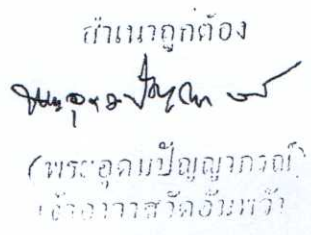 สำเนาถูกต้อง
(พระอุดมปัญญาภรณ์)
เจ้าอาวาสวัดอัมพวา